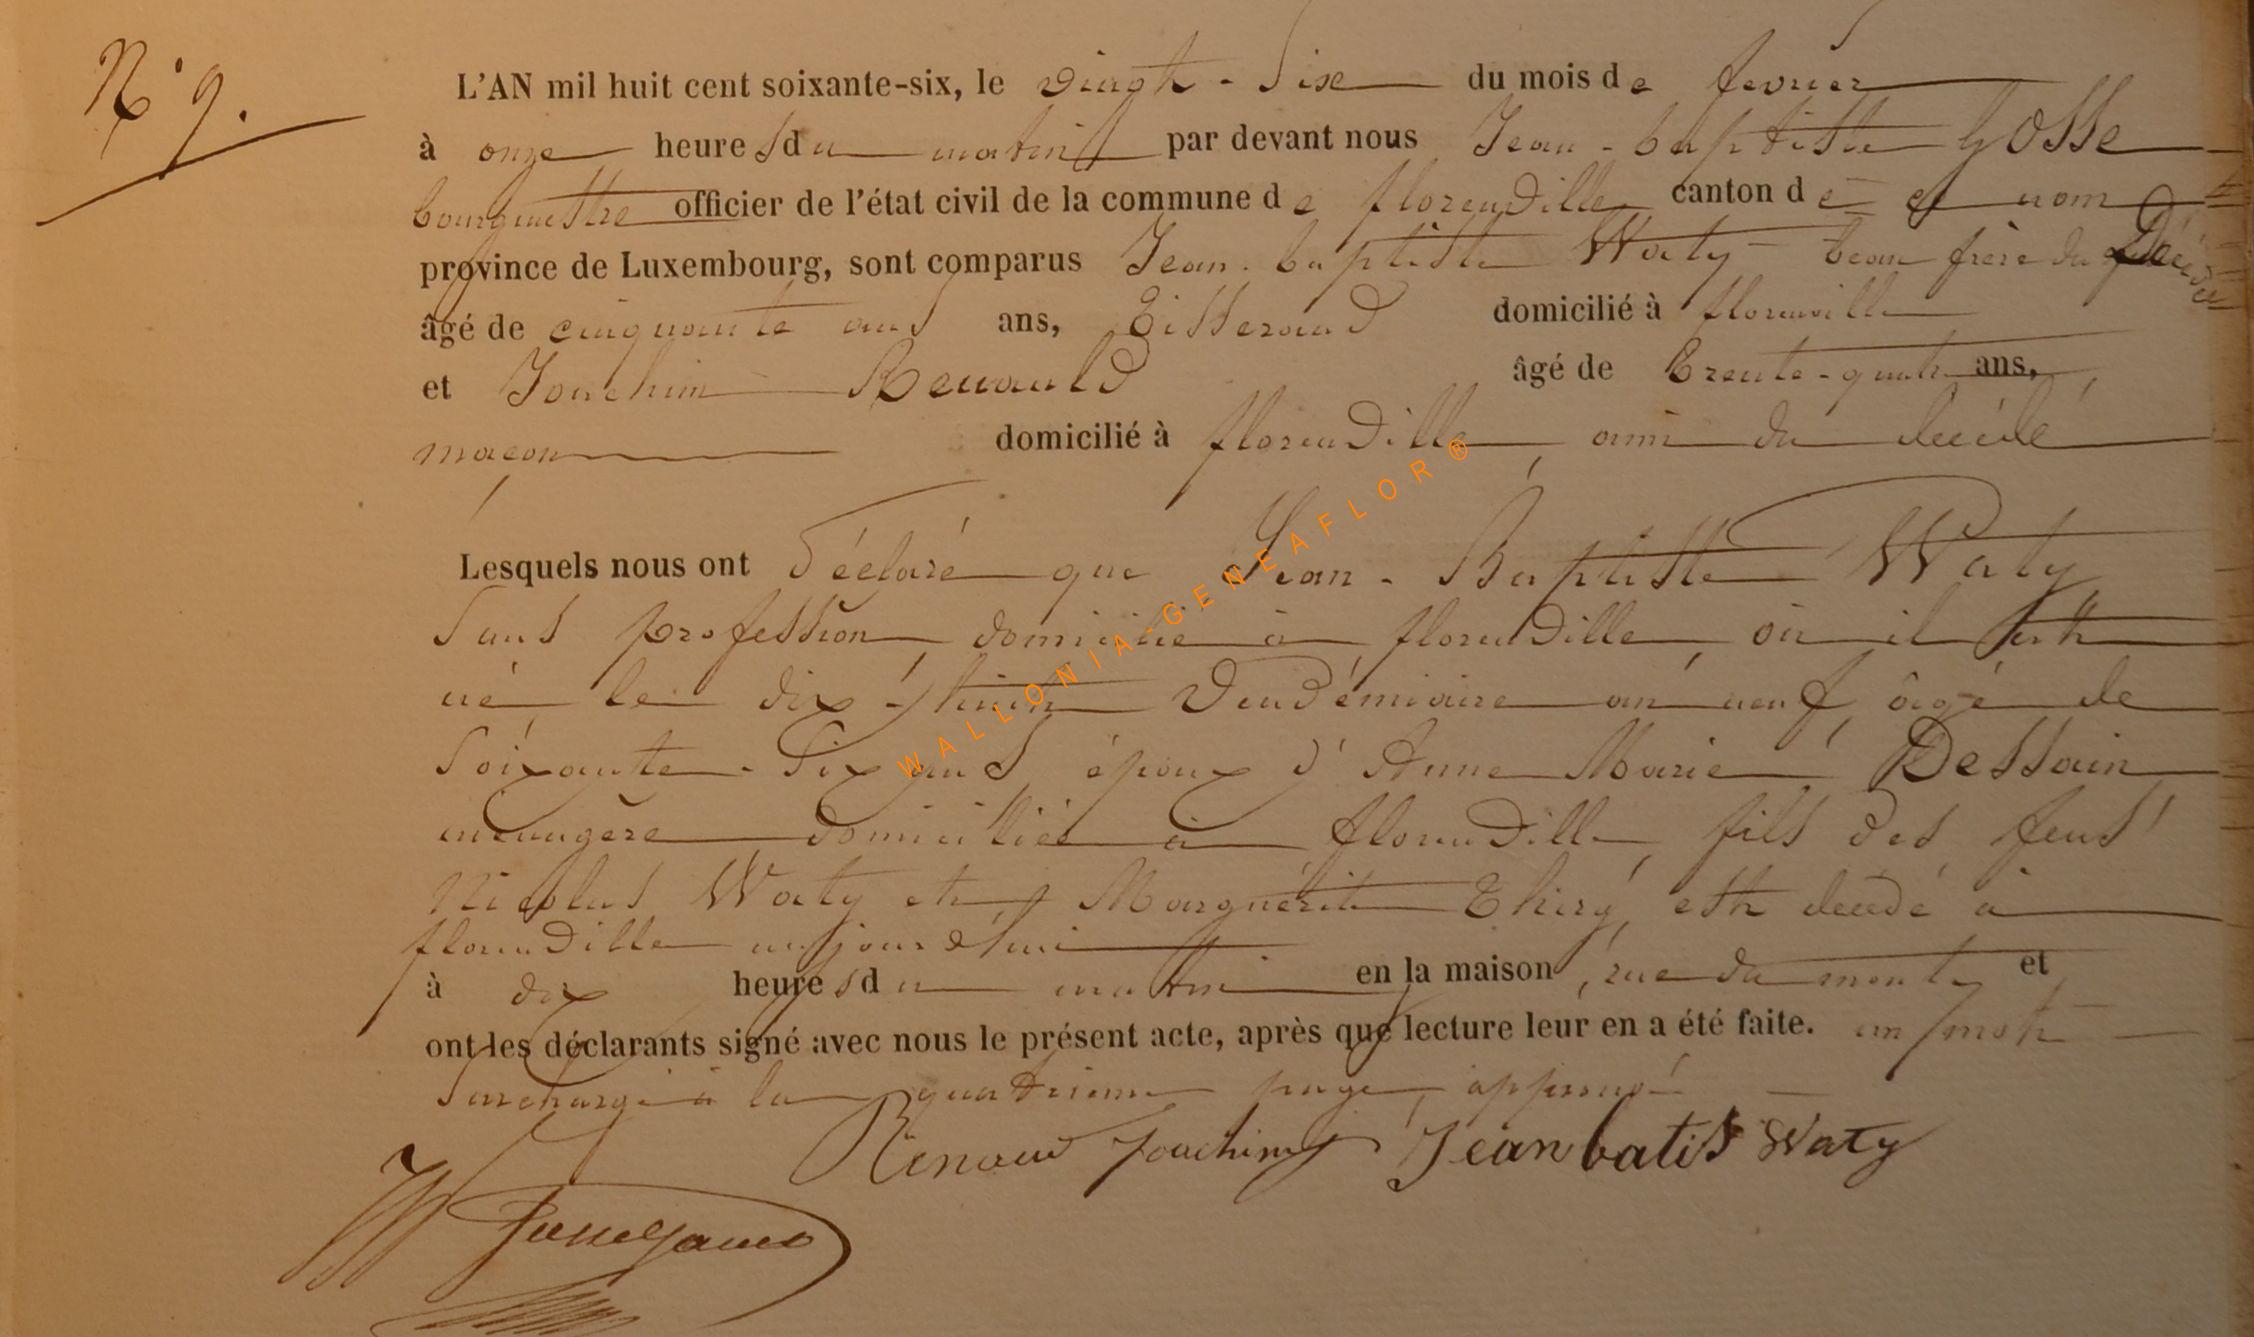 N° 9.
L'AN mil huit cent soixante-six, le vingt-six du mois de fevrier
à onze heures du matin par devant nous Jean-baptiste Gosse
bourgmestre officier de l'état civil de la commune de florenville canton de et nom
province de Luxembourg, sont comparus Jean-baptiste Waty beau frère du Décédé
âgé de cinquante ans ans, Tisserand domicilié à florenville
et Joachim Renauld âgé de trente-quatre ans,
maçon domicilié à florenville, ami du décédé
Lesquels nous ont déclaré que Jean-Baptiste Waty
sans profession, domicilié à florenville, où il est
né le dix-huit Vendémiaire an neuf, âgé de
soixante-six ans, époux d'Anne Marie Dessain
ménagère domiciliée à florenville, fils des feus
Nicolas Waty et Marguérite Thiry, est décédé à
florenville aujourd'hui
à dix heures du matin en la maison, rue du mont, et
ont les déclarants signé avec nous le présent acte, après que lecture leur en a été faite. un mot
surchargé à la quatrieme page, approuvé
Renaud Joachim Jean batis Waty
WALLONIA-GENEAFLOR®